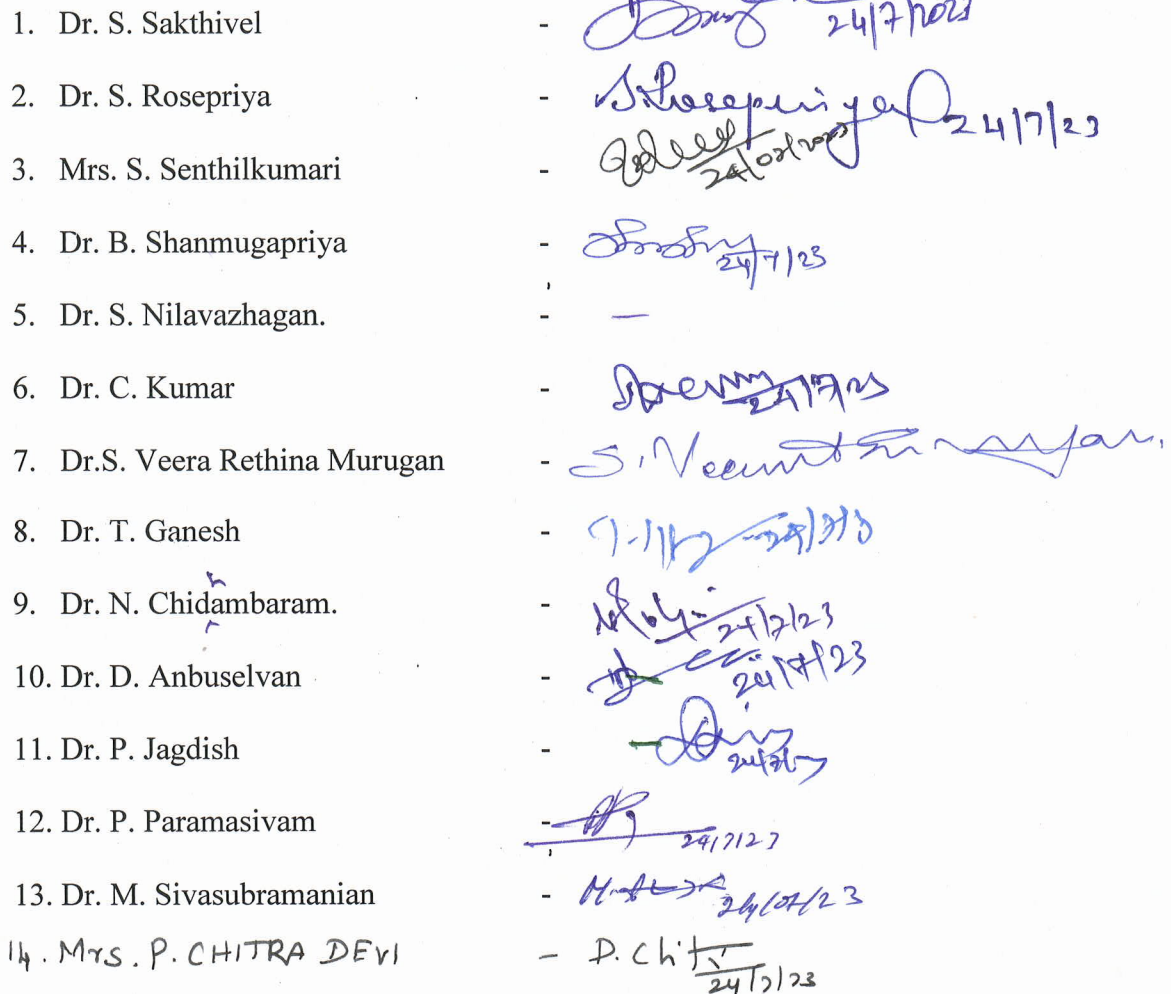 1. Dr. S. Sakthivel - 24/7/2023
2. Dr. S. Rosepriya - S. Rosepriya 24/7/23
3. Mrs. S. Senthilkumari - 24/07/2023
4. Dr. B. Shanmugapriya - 24/7/23
5. Dr. S. Nilavazhagan. - —
6. Dr. C. Kumar - 24/7/23
7. Dr.S. Veera Rethina Murugan -
8. Dr. T. Ganesh -
9. Dr. N. Chidambaram. - 24/7/23
10. Dr. D. Anbuselvan - 24/7/23
11. Dr. P. Jagdish -
12. Dr. P. Paramasivam - 24/7/23
13. Dr. M. Sivasubramanian - 24/07/23
14. Mrs. P. CHITRA DEVI - P. Chitra 24/7/23